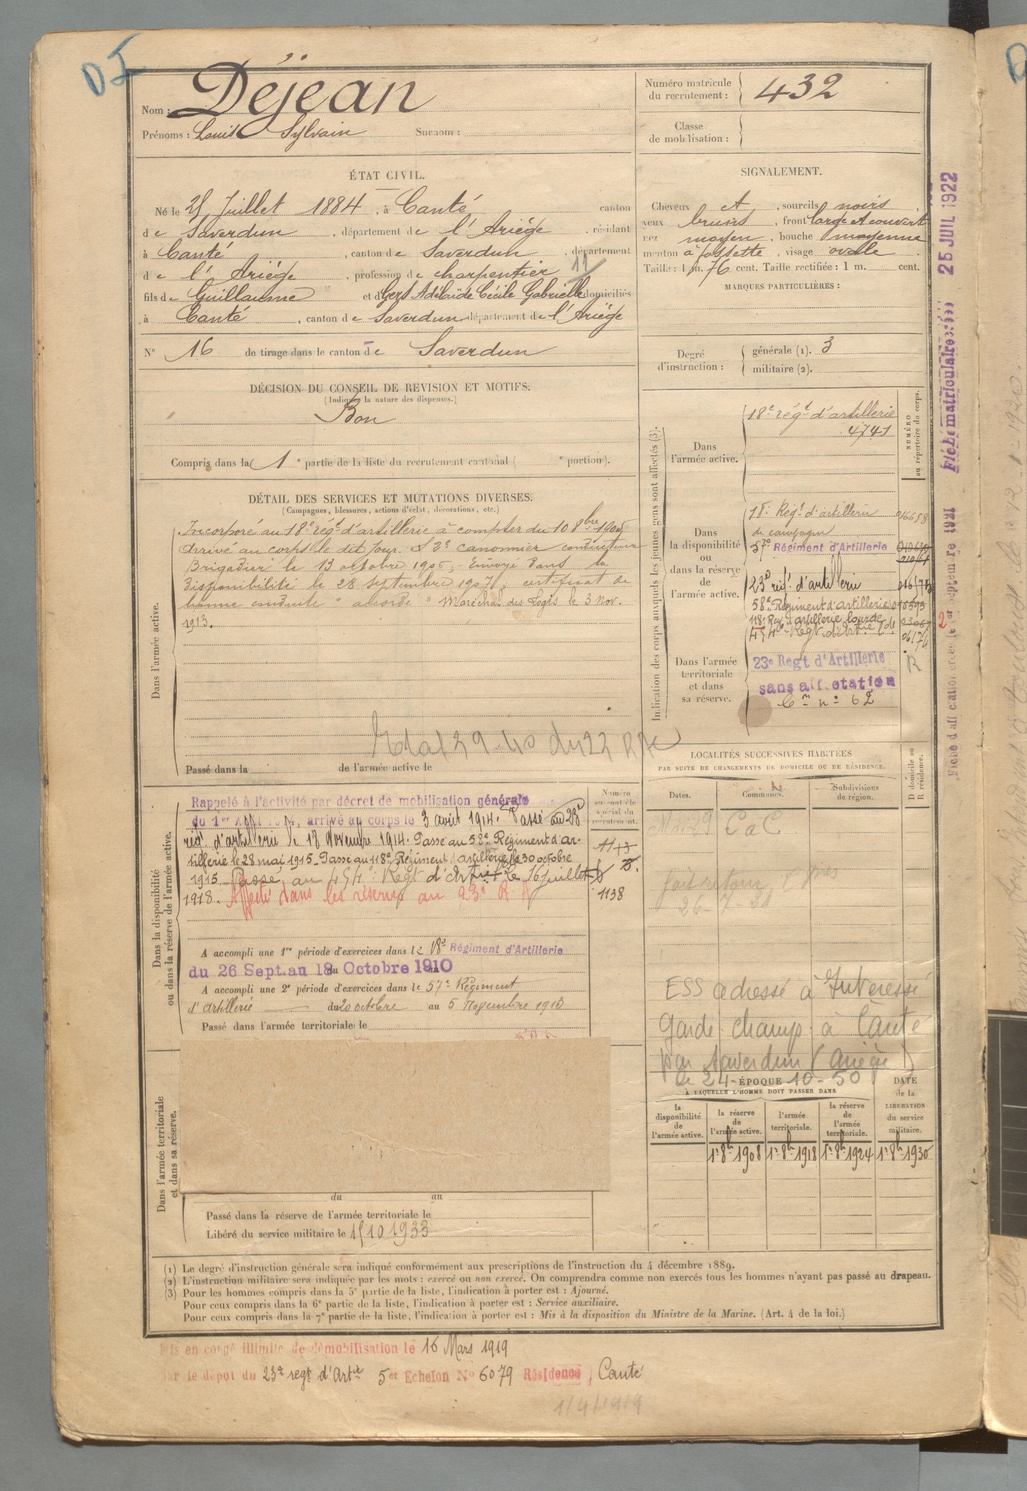 DJ
Nom : Déjean
Prénoms : Louis Sylvain Surnom :
Numéro matricule du recrutement : 432
Classe de mobilisation :
ÉTAT CIVIL.
Né le 25 Juillet 1884, à Canté canton
de Saverdun, département de l'Ariége, résidant
à Canté, canton de Saverdun, département
de l'Ariége, profession de charpentier 11
fils de Guillaume et de Gers Adélaïde Cécile Gabrielle domiciliés
à Canté, canton de Saverdun département de l'Ariége
N° 16 de tirage dans le canton de Saverdun
SIGNALEMENT.
Cheveux et, sourcils noirs,
yeux bruns, front large et couvert
nez moyen, bouche moyenne
menton à fossette, visage ovale
Taille : 1 m. 76 cent. Taille rectifiée : 1 m. cent.
MARQUES PARTICULIÈRES :
Degré d'instruction : générale (1). 3
militaire (2).
DÉCISION DU CONSEIL DE REVISION ET MOTIFS.
(Indiquer la nature des dispenses.)
Bon
Compris dans la 1e partie de la liste du recrutement cantonal ( portion).
DÉTAIL DES SERVICES ET MUTATIONS DIVERSES.
(Campagnes, blessures, actions d'éclat, décorations, etc.)
Dans l'armée active.
Incorporé au 18e régt d'artillerie à compter du 10 8bre 1905
arrivé au corps le dit jour. 2e canonnier conducteur
Brigadier le 13 octobre 1906, Envoyé dans la
disponibilité le 28 Septembre 1907, certificat de
bonne conduite "accordé" Maréchal des Logis le 3 Nov.
1913.
Passé dans la de l'armée active le
Indication des corps auxquels les jeunes gens sont affectés (3).
NUMÉRO au répertoire du corps.
Dans l'armée active.
18e régt d'artillerie
4741
Dans la disponibilité ou dans la réserve de l'armée active.
18e Régt d'artillerie
de campagne
57e Régiment d'Artillerie
23e régt d'artillerie
58e Régiment d'artillerie
118e Reg. d'artillerie lourde
Dans l'armée territoriale et dans sa réserve.
23e Regt d'Artillerie
R
sans affectation
Cm n° 62
LOCALITÉS SUCCESSIVES HABITÉES
PAR SUITE DE CHANGEMENTS DE DOMICILE OU DE RÉSIDENCE.
Dates. Communes. Subdivisions de région. D domicile ou R résidence.
CaC
26-7-30
ESS adressé à Intéressé
Garde champ à Canté
par Saverdun (Ariège)
le 24-10-50
Dans la disponibilité ou dans la réserve de l'armée active.
Rappelé à l'activité par décret de mobilisation générale
du 1er Août 1914, arrivé au corps le 3 août 1914. Passé au 23e
rég. d'artillerie le 18 Novembre 1914. Passé au 58e Régiment d'ar-
tillerie le 28 mai 1915. Passé au 118e Régiment d'artillerie le 30 octobre
1915. Passé au 454e Regt d'Artrie le 16 juillet
1918. Affecté dans les réserves au 23e R A
1143
1138
A accompli une 1re période d'exercices dans le 18e Régiment d'Artillerie
du 26 Sept. au 18 Octobre 1910
A accompli une 2e période d'exercices dans le 57e Régiment
d'artillerie du 20 octobre au 5 Novembre 1913
Passé dans l'armée territoriale le
Dans l'armée territoriale et dans sa réserve.
du au
Passé dans la réserve de l'armée territoriale le
Libéré du service militaire le 15 10 1933
ÉPOQUE
À LAQUELLE L'HOMME DOIT PASSER DANS
la disponibilité de l'armée active.
la réserve de l'armée active.
l'armée territoriale.
la réserve de l'armée territoriale.
DATE de la LIBÉRATION du service militaire.
1er 8bre 1908 1er 8bre 1918 1er 8bre 1924 1er 8bre 1930
(1) Le degré d'instruction générale sera indiqué conformément aux prescriptions de l'instruction du 4 décembre 1889.
(2) L'instruction militaire sera indiquée par les mots : exercé ou non exercé. On comprendra comme non exercés tous les hommes n'ayant pas passé au drapeau.
(3) Pour les hommes compris dans la 5e partie de la liste, l'indication à porter est : Ajourné.
Pour ceux compris dans la 6e partie de la liste, l'indication à porter est : Service auxiliaire.
Pour ceux compris dans la 7e partie de la liste, l'indication à porter est : Mis à la disposition du Ministre de la Marine. (Art. 4 de la loi.)
Mis en congé illimité de démobilisation le 16 Mars 1919
par le dépôt du 23e regt d'Artie 5er Echelon N° 6079 Résidence, Canté
1/4/1919
25 JUIL 1922